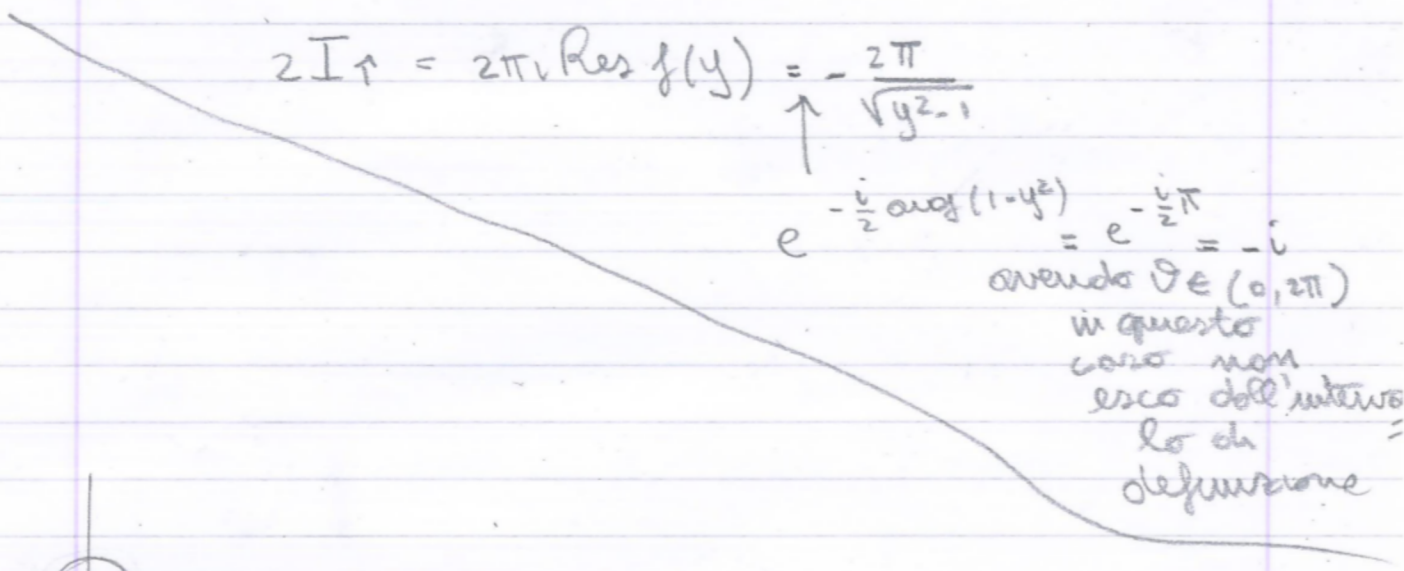 2I↑ = 2πi Res f(y) = - 2π/√(y²-1)
↑
e^(-i/2 arg(1-y²)) = e^(-i/2 π) = -i
avendo ϑ ∈ (0,2π)
in questo
caso non
esco dall'interva=
lo di
definizione